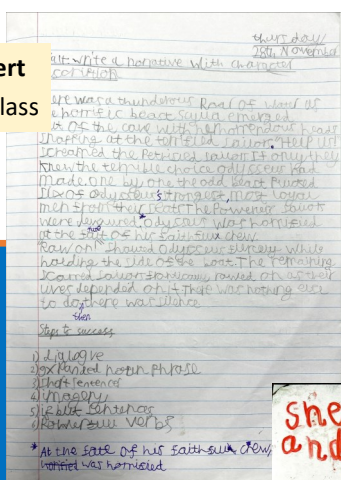 ert
lass
Thursday
28th November
write a narrative with character
ere was a thunderous Roar of
e horrific beast Scylla emerged
out of the cave with horrendous heads
Snapping at the terrified Sailors. "Help us"
screamed the Petrified sailors If only they
knew the terrible choice odysseus had
made. one by one the odd beast
six of odysseus's strongest, most loyal
men from their seats. The Powerless sailors
were Odysseus was horrified
at the of his faithful crew.
Raw on" Shouted Odysseus fiercely while
holding the side of the boat. The remaining
scarred sailors rowed on as their
lives depended on it. There was nothing else
to do, there was silence.
then
Steps to success
1) dialogue
2) expanded noun phrase
3) Short sentences
4) imagery
5) sentences
6) Powerful verbs
* At the fate of his faithful crew,
was horrified
she
and